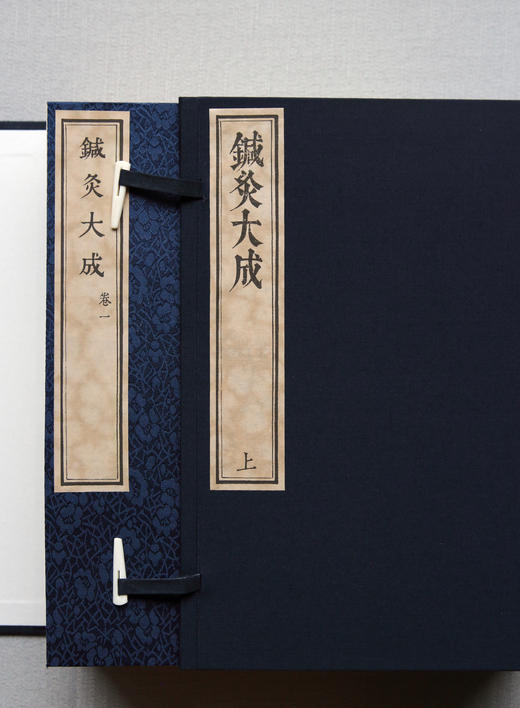 鍼灸大成
卷一
鍼灸大成
上